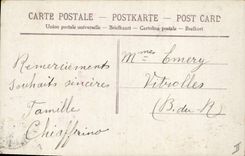 CARTE POSTALE — POSTKARTE — POST CARD
Union postale universelle — Briefkaart — Cartolina postale — Brefkort
Remerciements
Souhaits sincères
Famille
Chiaffrino
Mmes Emery
Vitrolles
(B. du R)